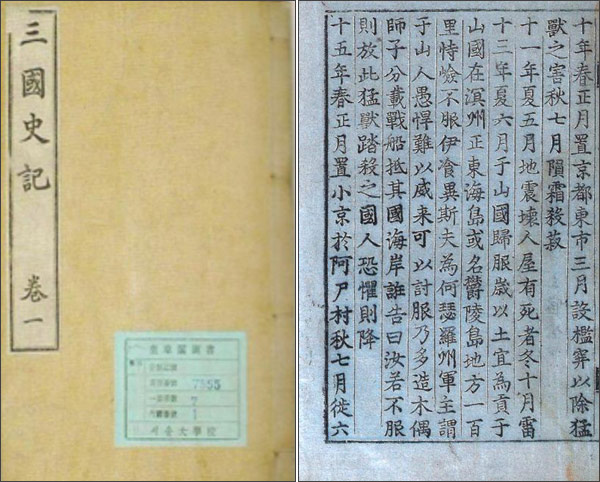 三國史記 卷一
奎章閣圖書
7
1
서울大學校
十年春正月置京都東市三月設檻穽以除猛
獸之害秋七月隕霜殺菽
十一年夏五月地震壞人屋有死者冬十月雷
十三年夏六月于山國歸服歲以土宜為貢于
山國在溟州正東海島或名欝陵島地方一百
里恃嶮不服伊飡異斯夫為何瑟羅州軍主謂
于山人愚悍難以威来可以討服乃多造木偶
師子分載戰船抵其國海岸誑告曰汝若不服
則放此猛獸踏殺之國人恐懼則降
十五年春正月置小京於阿尸村秋七月徙六